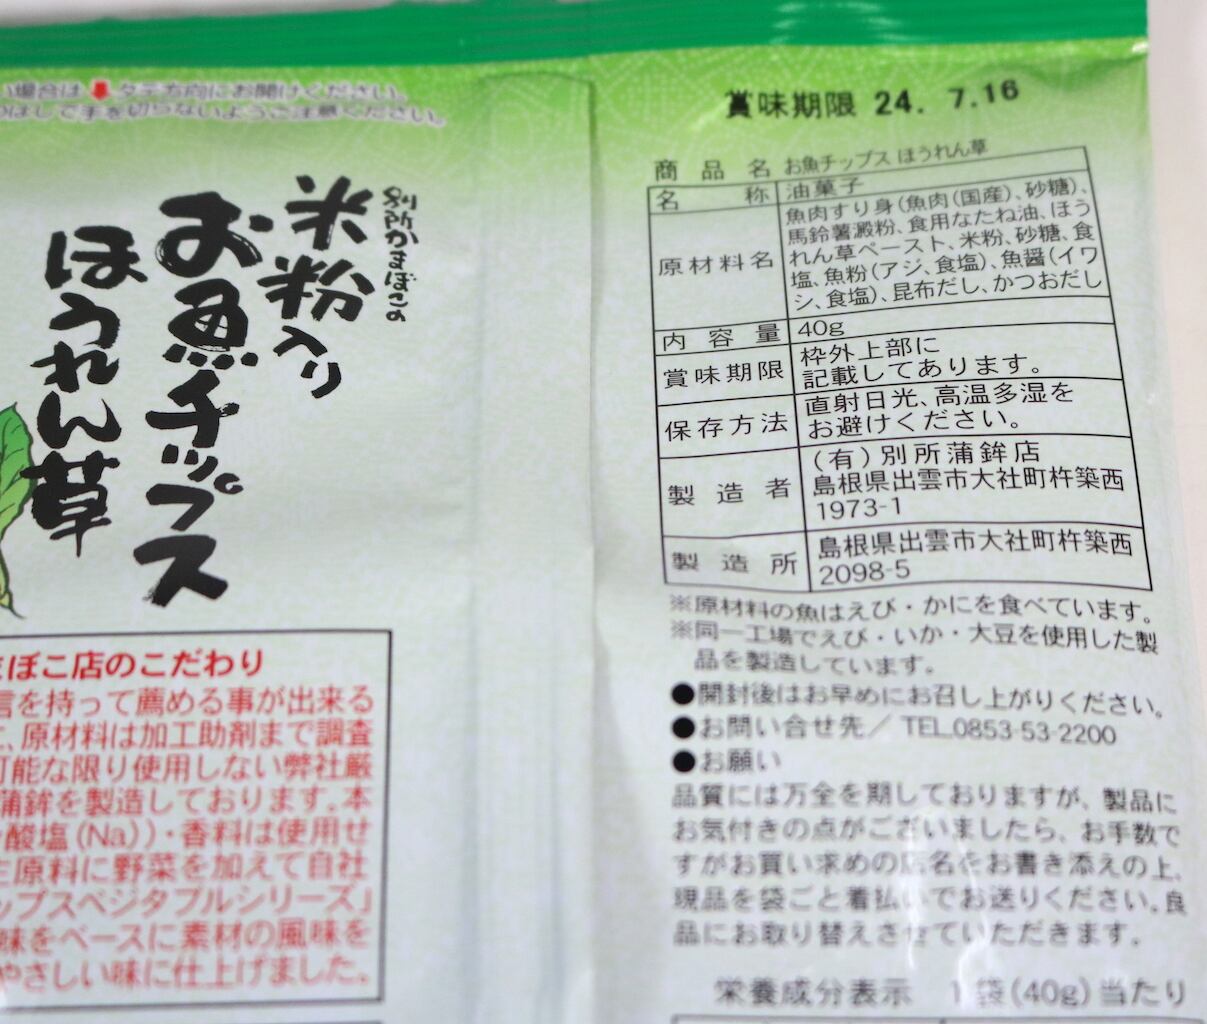 場合は タテ方向にお開けください。
はしで手を切らないようご注意ください。
別所かまぼこの
米粉入り
お魚チップス
ほうれん草
まぼこ店のこだわり
言を持って薦める事が出来る
、原材料は加工助剤まで調査
可能な限り使用しない弊社厳
蒲鉾を製造しております。本
酸塩(Na))・香料は使用せ
主原料に野菜を加えて自社
ップスベジタブルシリーズ」
味をベースに素材の風味を
やさしい味に仕上げました。
賞味期限 24. 7.16
商品名 お魚チップス ほうれん草
名称 油菓子
原材料名 魚肉すり身(魚肉(国産)、砂糖)、
馬鈴薯澱粉、食用なたね油、ほう
れん草ペースト、米粉、砂糖、食
塩、魚粉(アジ、食塩)、魚醤(イワ
シ、食塩)、昆布だし、かつおだし
内容量 40g
賞味期限 枠外上部に
記載してあります。
保存方法 直射日光、高温多湿を
お避けください。
製造者 (有)別所蒲鉾店
島根県出雲市大社町杵築西
1973-1
製造所 島根県出雲市大社町杵築西
2098-5
※原材料の魚はえび・かにを食べています。
※同一工場でえび・いか・大豆を使用した製
品を製造しています。
●開封後はお早めにお召し上がりください。
●お問い合せ先／TEL.0853-53-2200
●お願い
品質には万全を期しておりますが、製品に
お気付きの点がございましたら、お手数で
すがお買い求めの店名をお書き添えの上、
現品を袋ごと着払いでお送りください。良
品にお取り替えさせていただきます。
栄養成分表示 1袋(40g)当たり